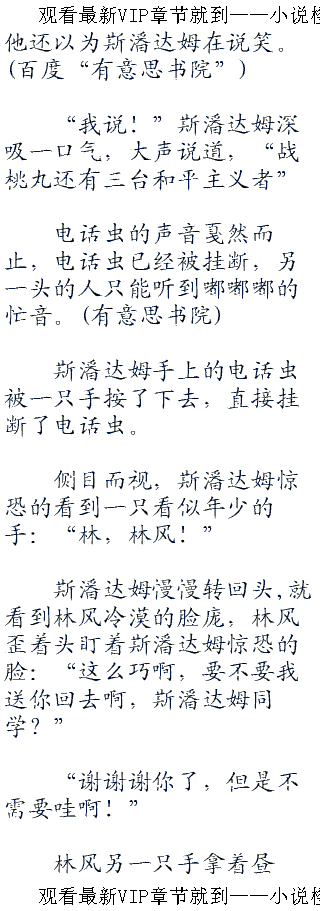 观看最新VIP章节就到——小说
他还以为斯潘达姆在说笑。
(百度“有意思书院”)
“我说！”斯潘达姆深
吸一口气，大声说道，“战
桃丸还有三台和平主义者”
电话虫的声音戛然而
止，电话虫已经被挂断，另
一头的人只能听到嘟嘟嘟的
忙音。(有意思书院)
斯潘达姆手上的电话虫
被一只手按了下去，直接挂
断了电话虫。
侧目而视，斯潘达姆惊
恐的看到一只看似年少的
手：“林，林风！”
斯潘达姆慢慢转回头,就
看到林风冷漠的脸庞，林风
歪着头盯着斯潘达姆惊恐的
脸：“这么巧啊，要不要我
送你回去啊，斯潘达姆同
学？”
“谢谢谢你了，但是不
需要哇啊！”
林风另一只手拿着昼
观看最新VIP章节就到——小说